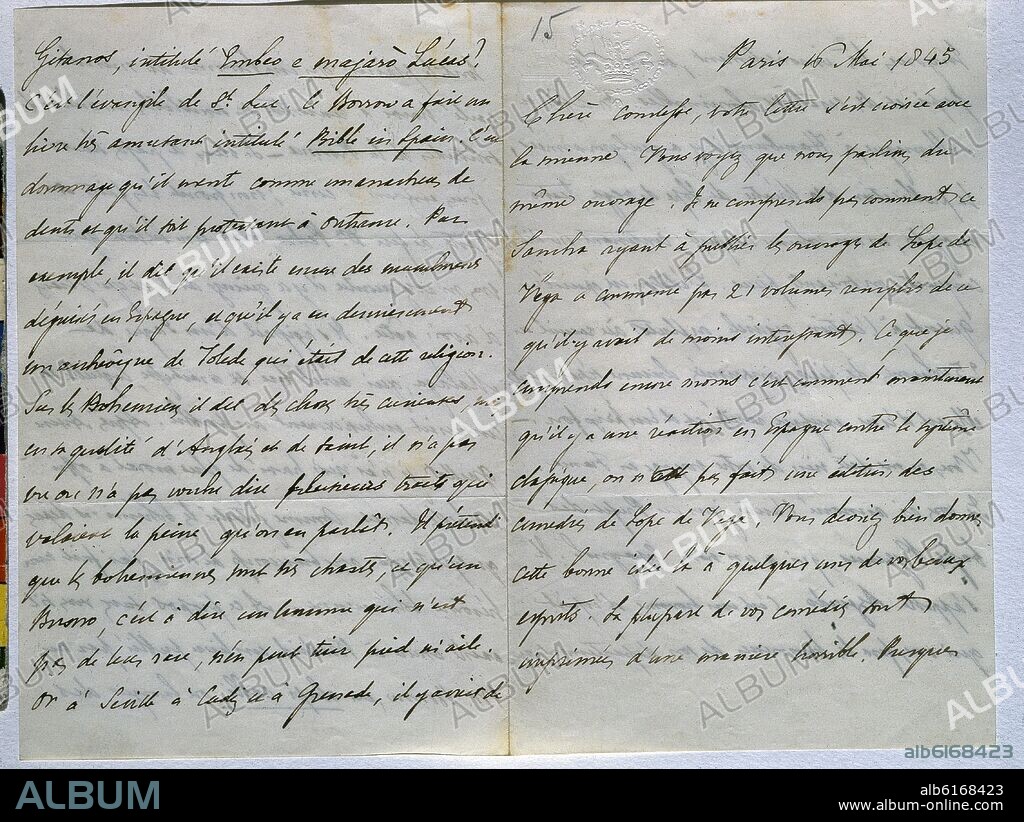 Gitanos, intitulé Embeo e majarò Lucas!
C'est l'évangile de St. Luc. Ce Borrow a fait un
livre très amusant intitulé Bible in Spain. C'est
dommage qu'il mente comme un arracheur de
dents et qu'il soit protestant à outrance. Par
exemple, il dit qu'il existe encore des musulmans
déguisés en Espagne, et qu'il y a eu dernièrement
un archevêque de Tolède qui était de cette religion.
Sur les Bohémiens il dit des choses très curieuses, mais
en sa qualité d'Anglais et de saint, il n'a pas
vu ou n'a pas voulu dire plusieurs traits qui
valaient la peine qu'on en parlât. Il prétend
que les bohémiennes sont très chastes, et qu'un
Busno, c'est à dire un homme qui n'est
pas de leur race, n'en peut tirer pied ni aile.
Or à Séville à Cadiz et à Grenade, il y avait de
15
Paris 16 Mai 1845
Chère Comtesse, votre lettre s'est croisée avec
la mienne. Vous voyez que nous parlions du
même ouvrage. Je ne comprends pas comment ce
Sancha ayant à publier les ouvrages de Lope de
Vega a commencé par 21 volumes remplis de ce
qu'il y avait de moins intéressant. Ce que je
comprends encore moins c'est comment maintenant
qu'il y a une réaction en Espagne contre le système
classique, on n'ait pas fait une édition des
comédies de Lope de Vega. Vous devriez bien donner
cette bonne idée là à quelques uns de vos beaux
esprits. La plupart de vos comédies sont
imprimées d'une manière horrible. Presques
ALBUM
alb6168423
ALBUM
alb6168423
www.album-online.com